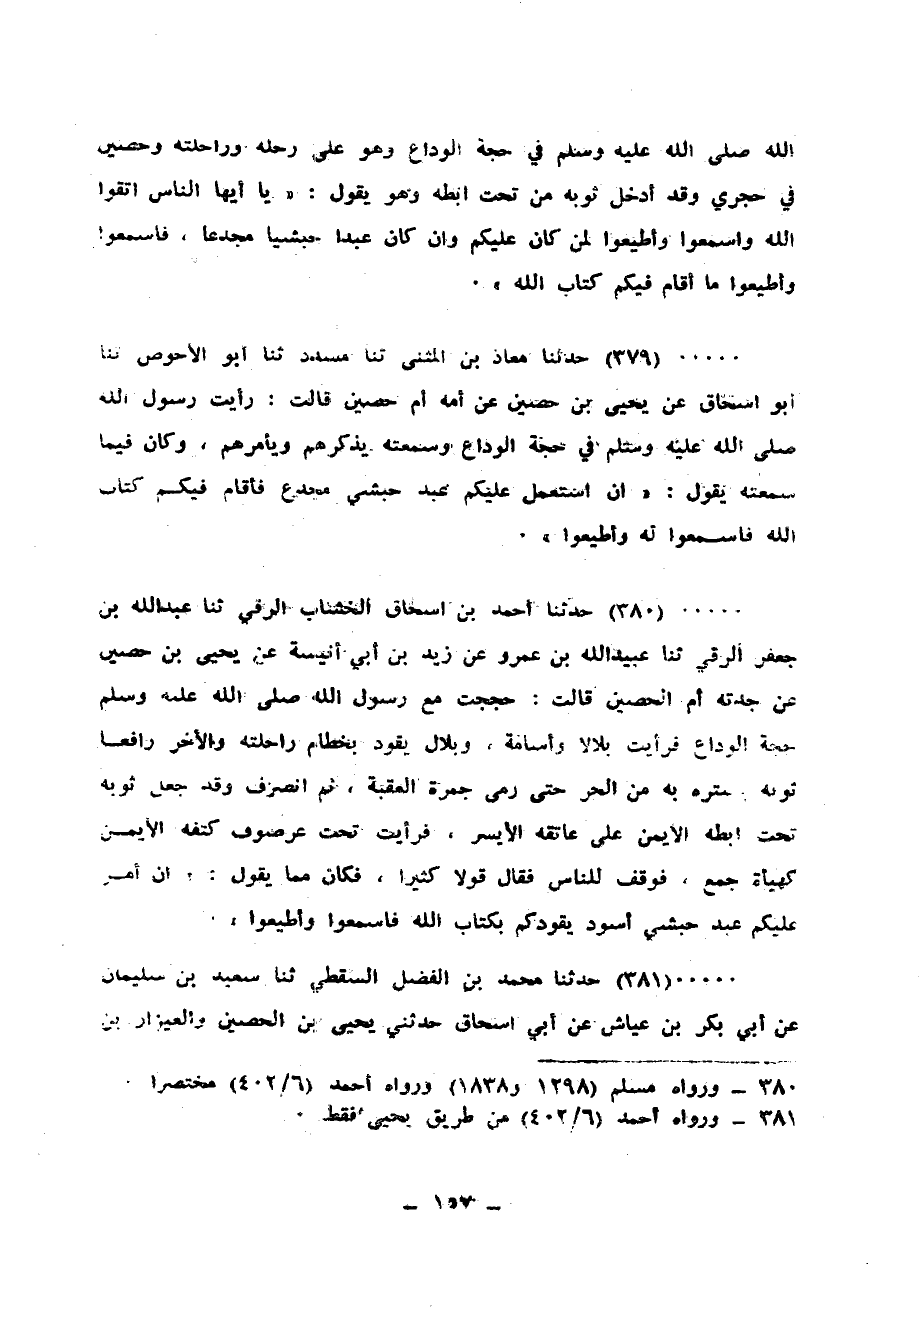 الله صلى الله عليه وسلم في حجة الوداع وهو على رحله وراحلته وحصين
في حجري وقد أدخل ثوبه من تحت ابطه وهو يقول : « يا أيها الناس اتقوا
الله واسمعوا وأطيعوا لمن كان عليكم وان كان عبدا حبشيا مجدعا ، فاسمعوا
وأطيعوا ما أقام فيكم كتاب الله » ٠
٠٠٠٠٠ (٣٧٩) حدثنا معاذ بن المثنى ثنا مسدد ثنا أبو الأحوص ثنا
أبو اسحاق عن يحيى بن حصين عن أمه أم حصين قالت : رأيت رسول الله
صلى الله عليه وسلم في حجة الوداع وسمعته يذكرهم ويأمرهم ، وكان فيما
سمعته يقول : « ان استعمل عليكم عبد حبشي مجدع فأقام فيكم كتاب
الله فاسمعوا له وأطيعوا » ٠
٠٠٠٠٠ (٣٨٠) حدثنا أحمد بن اسحاق الخشاب الرقي ثنا عبدالله بن
جعفر الرقي ثنا عبيدالله بن عمرو عن زيد بن أبي أنيسة عن يحيى بن حصين
عن جدته أم الحصين قالت : حججت مع رسول الله صلى الله عليه وسلم
حجة الوداع فرأيت بلالا وأسامة ، وبلال يقود بخطام راحلته والآخر رافعا
ثوبه يستره به من الحر حتى رمى جمرة العقبة ، ثم انصرف وقد جعل ثوبه
تحت ابطه الأيمن على عاتقه الأيسر ، فرأيت تحت غرضوف كتفه الأيمن
كهيأة جمع ، فوقف للناس فقال قولا كثيرا ، فكان مما يقول : « ان أمر
عليكم عبد حبشي أسود يقودكم بكتاب الله فاسمعوا وأطيعوا » ٠
٠٠٠٠٠(٣٨١) حدثنا محمد بن الفضل السقطي ثنا سعيد بن سليمان
عن أبي بكر بن عياش عن أبي اسحاق حدثني يحيى بن الحصين والعيزار بن
٣٨٠ ــ ورواه مسلم (١٢٩٨ و١٨٣٨) ورواه أحمد (٤٠٢/٦) مختصرا ٠
٣٨١ ــ ورواه أحمد (٤٠٢/٦) من طريق يحيى فقط ٠
ــ ١٥٧ ــ